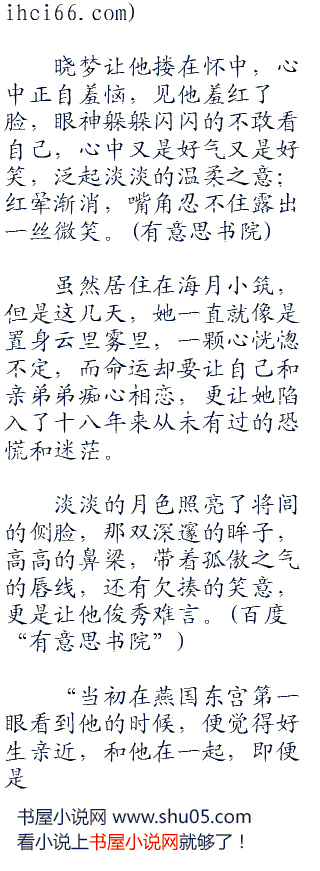 ihci66.com)
晓梦让他搂在怀中，心
中正自羞恼，见他羞红了
脸，眼神躲躲闪闪的不敢看
自己，心中又是好气又是好
笑，泛起淡淡的温柔之意；
红晕渐消，嘴角忍不住露出
一丝微笑。(有意思书院)
虽然居住在海月小筑，
但是这几天，她一直就像是
置身云里雾里，一颗心恍惚
不定，而命运却要让自己和
亲弟弟痴心相恋，更让她陷
入了十八年来从未有过的恐
慌和迷茫。
淡淡的月色照亮了将闾
的侧脸，那双深邃的眸子，
高高的鼻梁，带着孤傲之气
的唇线，还有欠揍的笑意，
更是让他俊秀难言。(百度
“有意思书院”)
“当初在燕国东宫第一
眼看到他的时候，便觉得好
生亲近，和他在一起，即便
是
书屋小说网 www.shu05.com
看小说上书屋小说网就够了！